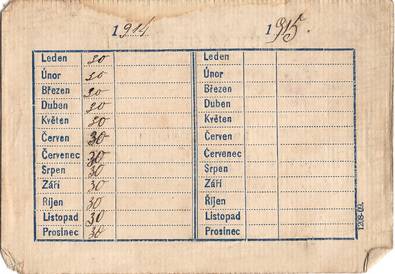 1914. 1915.
Leden 20 Leden
Únor 20 Únor
Březen 20 Březen
Duben 20 Duben
Květen 20 Květen
Červen 30 Červen
Červenec 30 Červenec
Srpen 30 Srpen
Září 30 Září
Říjen 30 Říjen
Listopad 30 Listopad
Prosinec 30 Prosinec
1208-09.